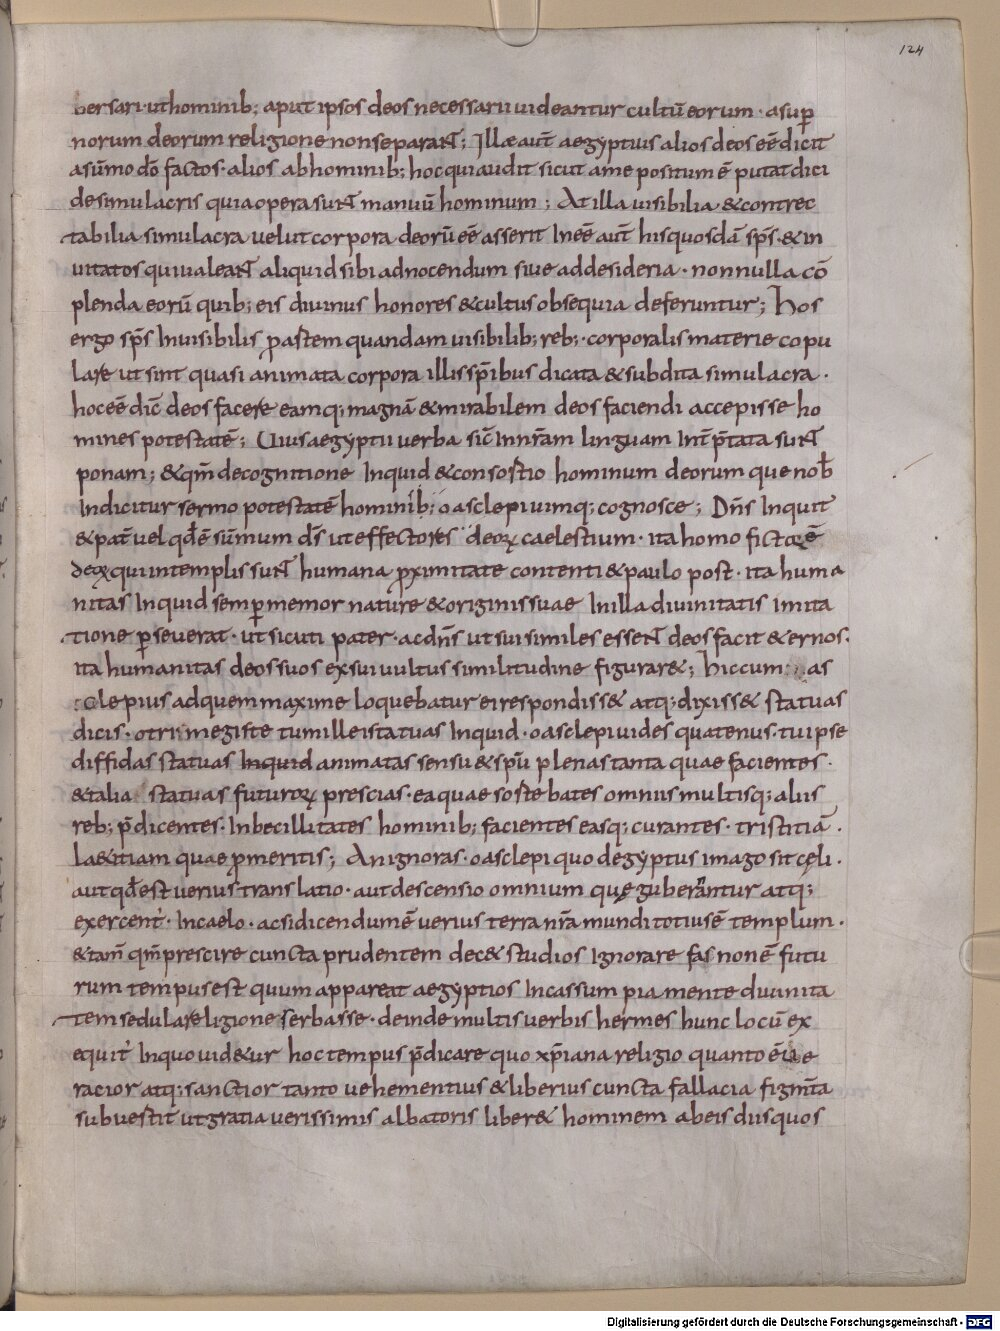 124
bersari· ut hominib; aput ipsos deos necessarii uideantur cultū eorum · a sup̄
norum deorum religione non separant; Ille aut̄ aegyptius alios deos eē dicit
a sūmo dō factos · alios ab hominib; hoc qui audit sicut a me positum ē putat dici
de simulacris quia opera sunt manuū hominum; At illa uisibilia & contrec
tabilia simulacra uelut corpora deorū eē asserit Ineē aut̄ his quosdā sp̄s · & in
uitatos qui ualeant aliquid sibi ad nocendum siue ad desideria · non nulla cō
plenda eorū quib; eis diuinus honores & cultus obsequia deferuntur; Hos
ergo sp̄s Inuisibilis p̄ astem quandam uisibilib; reb; · corporalis materie copu
lare ut sint quasi animata corpora illis sp̄ibus dicata & subdita simulacra ·
hoc eē dic̄ deos facere eamq; magnā & mirabilem deos faciendi accepisse ho
mines potestatē; Uius aegyptii uerba sic̄ In nr̄am linguam Int̄p̄tata sunt
ponam; & qm̄ de cognitione Inquid & consostio hominum deorum que nob̄
Indicitur sermo potestatē hominib; o asclepi uimq; cognosce; Dn̄s Inquit
& pat̄ uel qd̄ ē sūmum d̄s ut effectores deoꝝ caelestium · ita homo fictor ē
deoꝝ qui in templis sunt humana p̄ximitate contenti & paulo post · ita huma
nitas Inquid semp̄ memor nature & originis suae In illa diuinitatis imita
tione p̄seuerat · ut sicuti pater · ac dn̄s ut sui similes essent deos facit & ernos ·
ita humanitas deos suos ex sui uultus similitudine figurar&; hic cum as
clepius ad quem maxime loquebatur ei respondiss& atq; dixiss& statuas
dicis · o trimegiste tum ille statuas Inquid · o asclepi uides quatenus · tu ipse
diffidas statuas Inquid animatas sensu & spū plenas tanta quae facientes ·
& talia statuas futuroꝝ prescias · ea quae soste bates omnius multisq; aliis
reb; p̄dicentes · Inbecillitates hominib; facientes easq; curantes · tristitiā ·
la&itiam quae p̄ meritis; An ignoras · o asclepi quod egyptus imago sit cęli ·
aut qd̄ est uerius translatio · aut descensio omnium quę guberantur atq;
exercent̄ · In caelo · ac si dicendum ē uerius terra nr̄a mundi totius ē templum ·
& tam̄ qm̄ prescire cuncta prudentem dec& studios Ignorare fas non ē futu
rum tempus est quum appareat aegyptios Incassum pia mente diuinita
tem sedula religione serbasse · deinde multis uerbis hermes hunc locū ex
equit̄ In quo uid&ur hoc tempus p̄dicare quo xp̄iana religio quanto ē ue
racior atq; sanctior tanto uehementius & liberius cuncta fallacia figm̄ta
subuestit ut gratia uerissimis albatoris liber& hominem ab eis diis quos
Digitalisierung gefördert durch die Deutsche Forschungsgemeinschaft - DFG